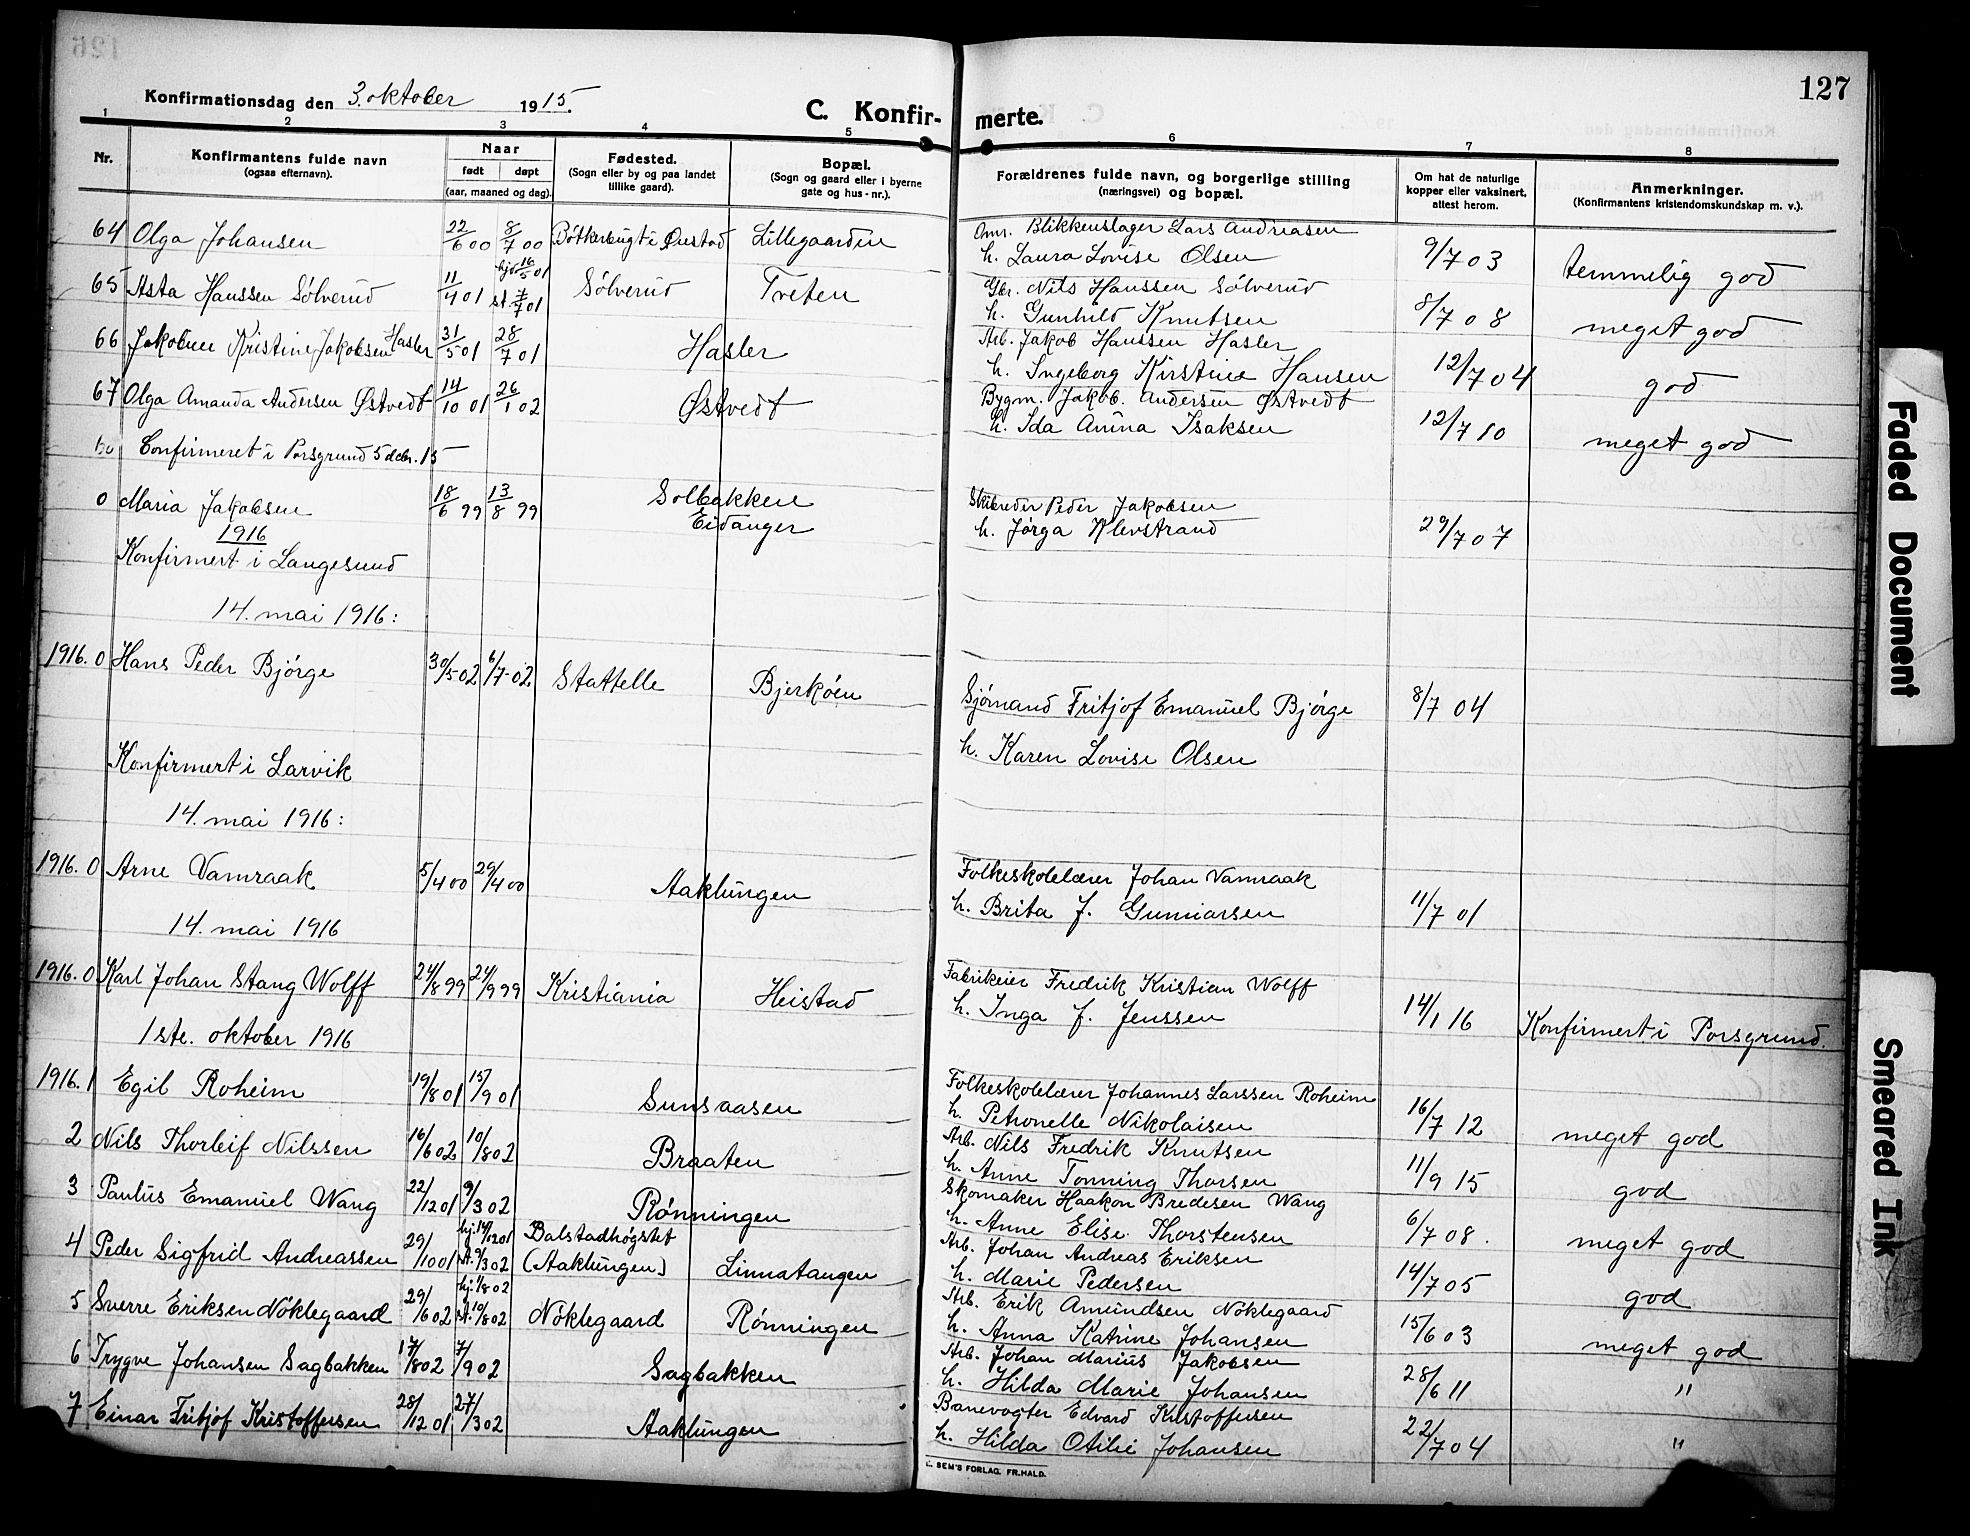 127
Konfirmationsdag den 3. oktober 1915.
C. Konfir- merte.
1 2 3 4 5 6 7 8
Nr.
Konfirmantens fulde navn
(ogsaa efternavn).
Naar
født døpt
(aar, maaned og dag).
Fødested.
(Sogn eller by og paa landet
tillike gaard).
Bopæl.
(Sogn og gaard eller i byerne
gate og hus-nr.).
Forældrenes fulde navn, og borgerlige stilling
(næringsvei) og bopæl.
Om hat de naturlige
kopper eller vaksinert,
attest herom.
Anmerkninger.
(Konfirmantens kristendomskundskap m. v.).
64 Olga Johansen 22/6 00 8/7 00 Lillegaarden Blikkenslager Lars Andreasen
h. Laura Lovise Olsen 9/7 03 temmelig god
65 Asta Hanssen Sølverud 11/4 01 hj. 16/5 01 Sølverud Tveten Nils Hanssen Sølverud
h. Gunhild Knutsen 8/7 08 meget god
66 Jakobine Kristine Jakobsen Hasler 31/5 01 28/7 01 Hasler Arb. Jakob Hanssen Hasler
h. Ingeborg Kirstine Hansen 12/7 04 god
67 Olga Amanda Andersen Østvedt 14/10 01 26/1 02 Østvedt Bygm. Jakob. Andersen Østvedt
h. Ida Anina Isaksen 12/7 10 meget god
Confirmeret i Porsgrund 5 decbr. 15
0 Maria Jakobsen 18/6 99 13/8 99 Solbakken
Eidanger Skibreder Peder Jakobsen
h. Jørga Klevstrand 29/7 07
1916
Konfirmert i Langesund
14. mai 1916:
1916. 0 Hans Peder Bjørge 30/5-02 6/7-02 Stattelle Bjerkøen Sjømand Fritjof Emanuel Bjørge 8/7 04
h. Karen Lovise Olsen
Konfirmert i Larvik
14. mai 1916:
1916. 0 Arne Vamraak 5/4 00 29/4 00 Aaklungen Folkeskolelærer Johan Vamraak
h. Brita J. Gunnarsen 11/7 01
14. mai 1916
1916. 0 Karl Johan Stang Wolff 24/8 99 24/9 99 Kristiania Heistad Fabrikeier Fredrik Kristian Wolff
h. Inga J. Jenssen 14/1 16 Konfirmert i Porsgrund.
1ste. oktober 1916
1916. 1 Egil Roheim 19/8 01 15/9 01 Sunsaasen Folkeskolelærer Johannes Larssen Roheim
h. Petronelle Nikolaisen 16/7 12 meget god
2 Nils Thorleif Nilssen 16/6 02 10/8 02 Braaten Arb. Nils Fredrik Knutsen
h. Anne Tonning Thorsen 11/9 15 god
3 Paulus Emanuel Wang 22/12 01 9/3 02 Rønningen Skomaker Haakon Bredesen Wang
h. Anne Elise Thorstensen 6/7 08. meget god
4 Peder Sigfrid Andreassen 29/10 01 hj. 14/12 01 st. 9/3 02 Balstadhøgstet
(Aaklungen) Linnatangen Arb. Johan Andreas Eriksen
h. Marie Pedersen 14/7 05 god
5 Sverre Eriksen Nøklegaard 29/6 02 hj. 1/8 02 st. 10/8 02 Nøklegaard Rønningen Arb. Erik Amundsen Nøklegaard
h. Anna Katrine Johansen 15/6 03 meget god
6 Trygve Johansen Sagbakken 17/8 02 7/9 02 Sagbakken Arb. Johan Marius Jakobsen
h. Hilda Marie Johansen 28/6 11 "
7 Einar Fritjof Kristoffersen 28/12 01 27/3 02 Aaklungen Banevogter Edvard Kristoffersen
h. Hilda Otilie Johansen 22/7 04 "
E. SEM'S FORLAG. FR.HALD.
Faded Document
Smeared Ink